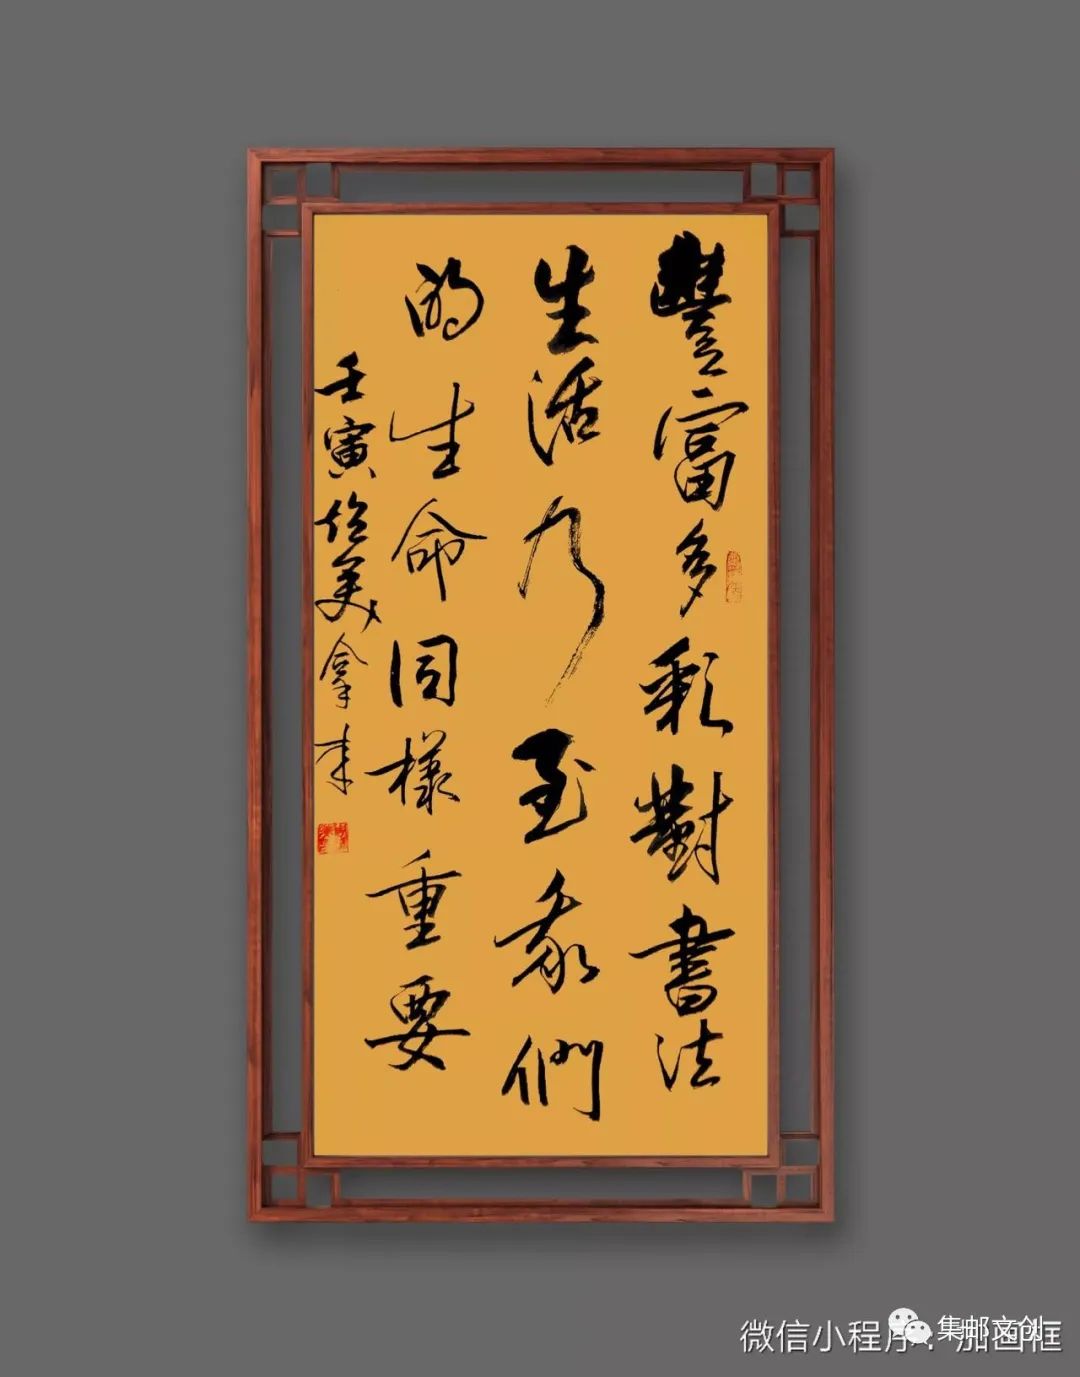 豐富多彩對書法
生活乃至我們
的生命同樣重要
壬寅 美拿來
微信小程序：加画框
集邮文创